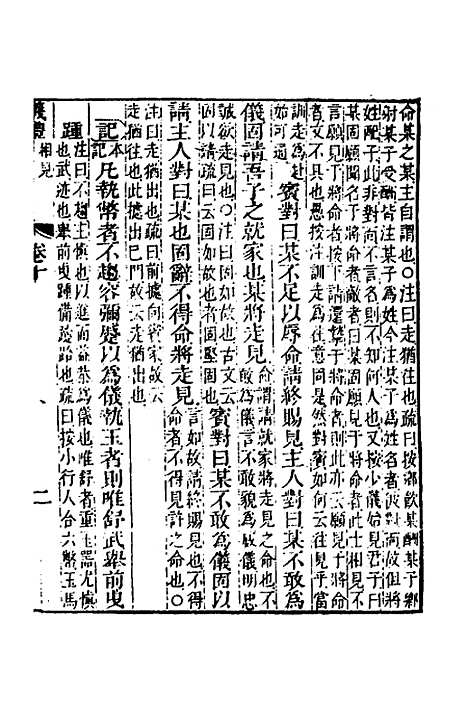 命某之某主自謂也○注曰走猶往也疏曰按鄉飲某酬某子鄉
射某子受酬皆注某子爲姓今注某子爲姓名者彼對面故但將
姓配子此非對面不言名則不知何人也又按少儀始見君子曰
某固願聞名于將命者敵者曰某固願見于將命者此士相見不
言願見于將命者按下請還摯于將命者則此亦云願見于將命
者文不具也愚按注訓走爲往意同是然對賓如何云往見乎當
訓走爲赴
如可通
賓對曰某不足以辱命請終賜見主人對曰某不敢爲
儀固請吾子之就家也某將走見
命謂請就家將走見之命也不
敢爲儀言不敢貌爲威儀明忠
誠欲走見也○注曰固如故也古文云
固以請疏曰云固如故也者固堅固也
賓對曰某不敢爲儀固以
請主人對曰某也固辭不得命將走見
言如故請終賜見也不得
命者不得見許之命也○
注曰走猶出也疏曰前據向賓家故云
走猶往也此據出已門故云走猶出也
記
本記
凡執幣者不趨容彌蹙以爲儀執玉者則唯舒武舉前曳
踵
注曰不趨主慎也以進而益恭爲儀也唯舒者重玉器尤慎
也武迹也舉前曳踵備
跲也疏曰按小行人合六幣玉馬
儀禮
相見
卷十
二